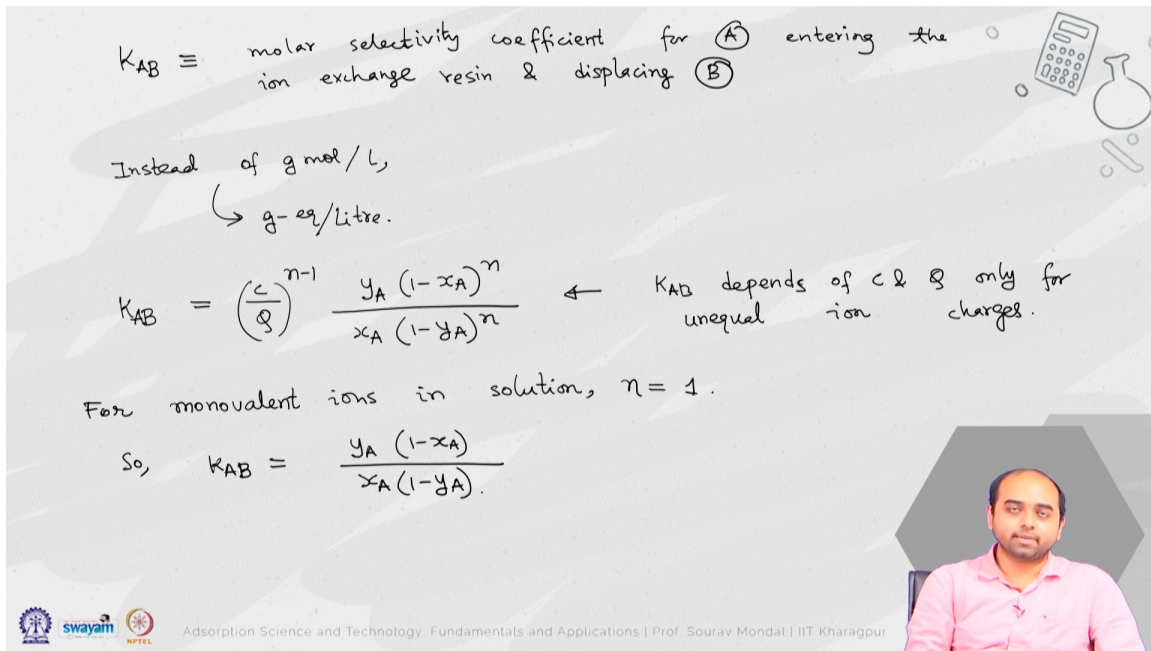 K_AB ≡ molar selectivity coefficient for Ⓐ entering the
ion exchange resin & displacing Ⓑ
Instead of g mol/L,
↳ g-eq/Litre.
K_AB = (C/Q)^(n-1) y_A (1-x_A)^n / x_A (1-y_A)^n ← K_AB depends of C & Q only for
unequal ion charges.
For monovalent ions in solution, n = 1.
So, K_AB = y_A (1-x_A) / x_A (1-y_A).
swayam
NPTEL
Adsorption Science and Technology: Fundamentals and Applications | Prof. Sourav Mondal | IIT Kharagpur